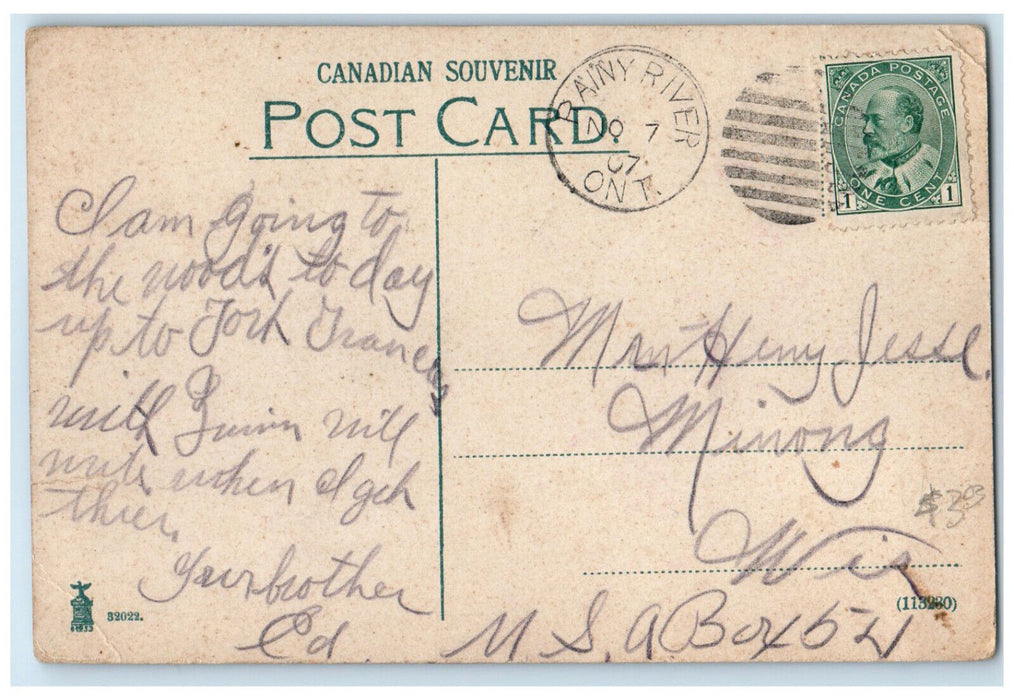 CANADIAN SOUVENIR
POST CARD.
RAINY RIVER
NO 7
07
ONT.
CANADA POSTAGE
1 ONE CENT 1
I am going to
the woods to day
up to Fort Frances
with Quinn will
write when I get
thier.
Your brother
Ed.
Henry Jesse.
Minong
Wis
U.S.A Box 52
$3.03
32022.
(113230)